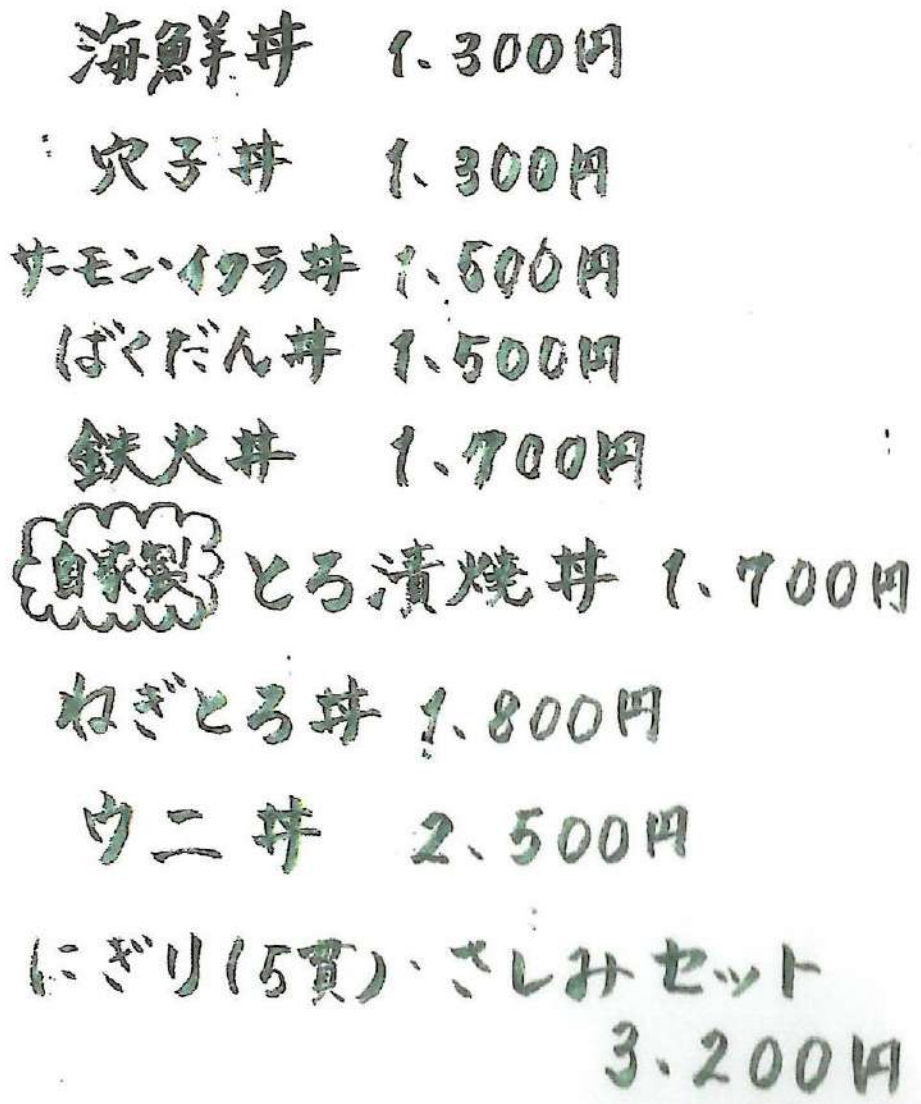 海鮮丼 1、300円
穴子丼 1、300円
サーモン・イクラ丼 1、500円
ばくだん丼 1、500円
鉄火丼 1、700円
自家製 とろ漬焼丼 1、700円
ねぎとろ丼 1、800円
ウニ丼 2、500円
にぎり(5貫)・さしみセット
3、200円